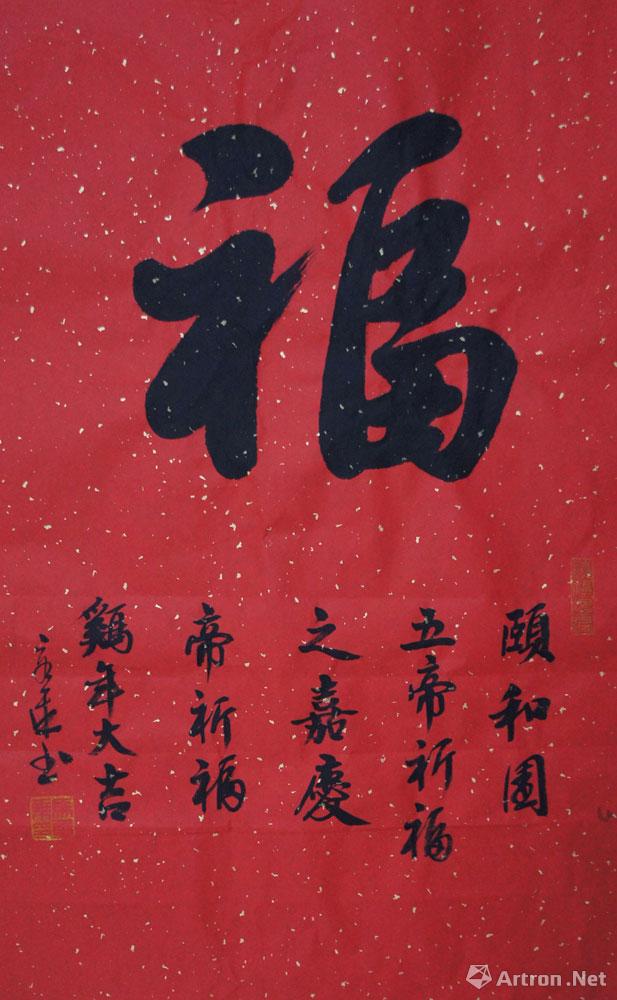 福
颐和園
五帝祈福
之嘉慶
帝祈福
鷄年大吉
Artron.Net